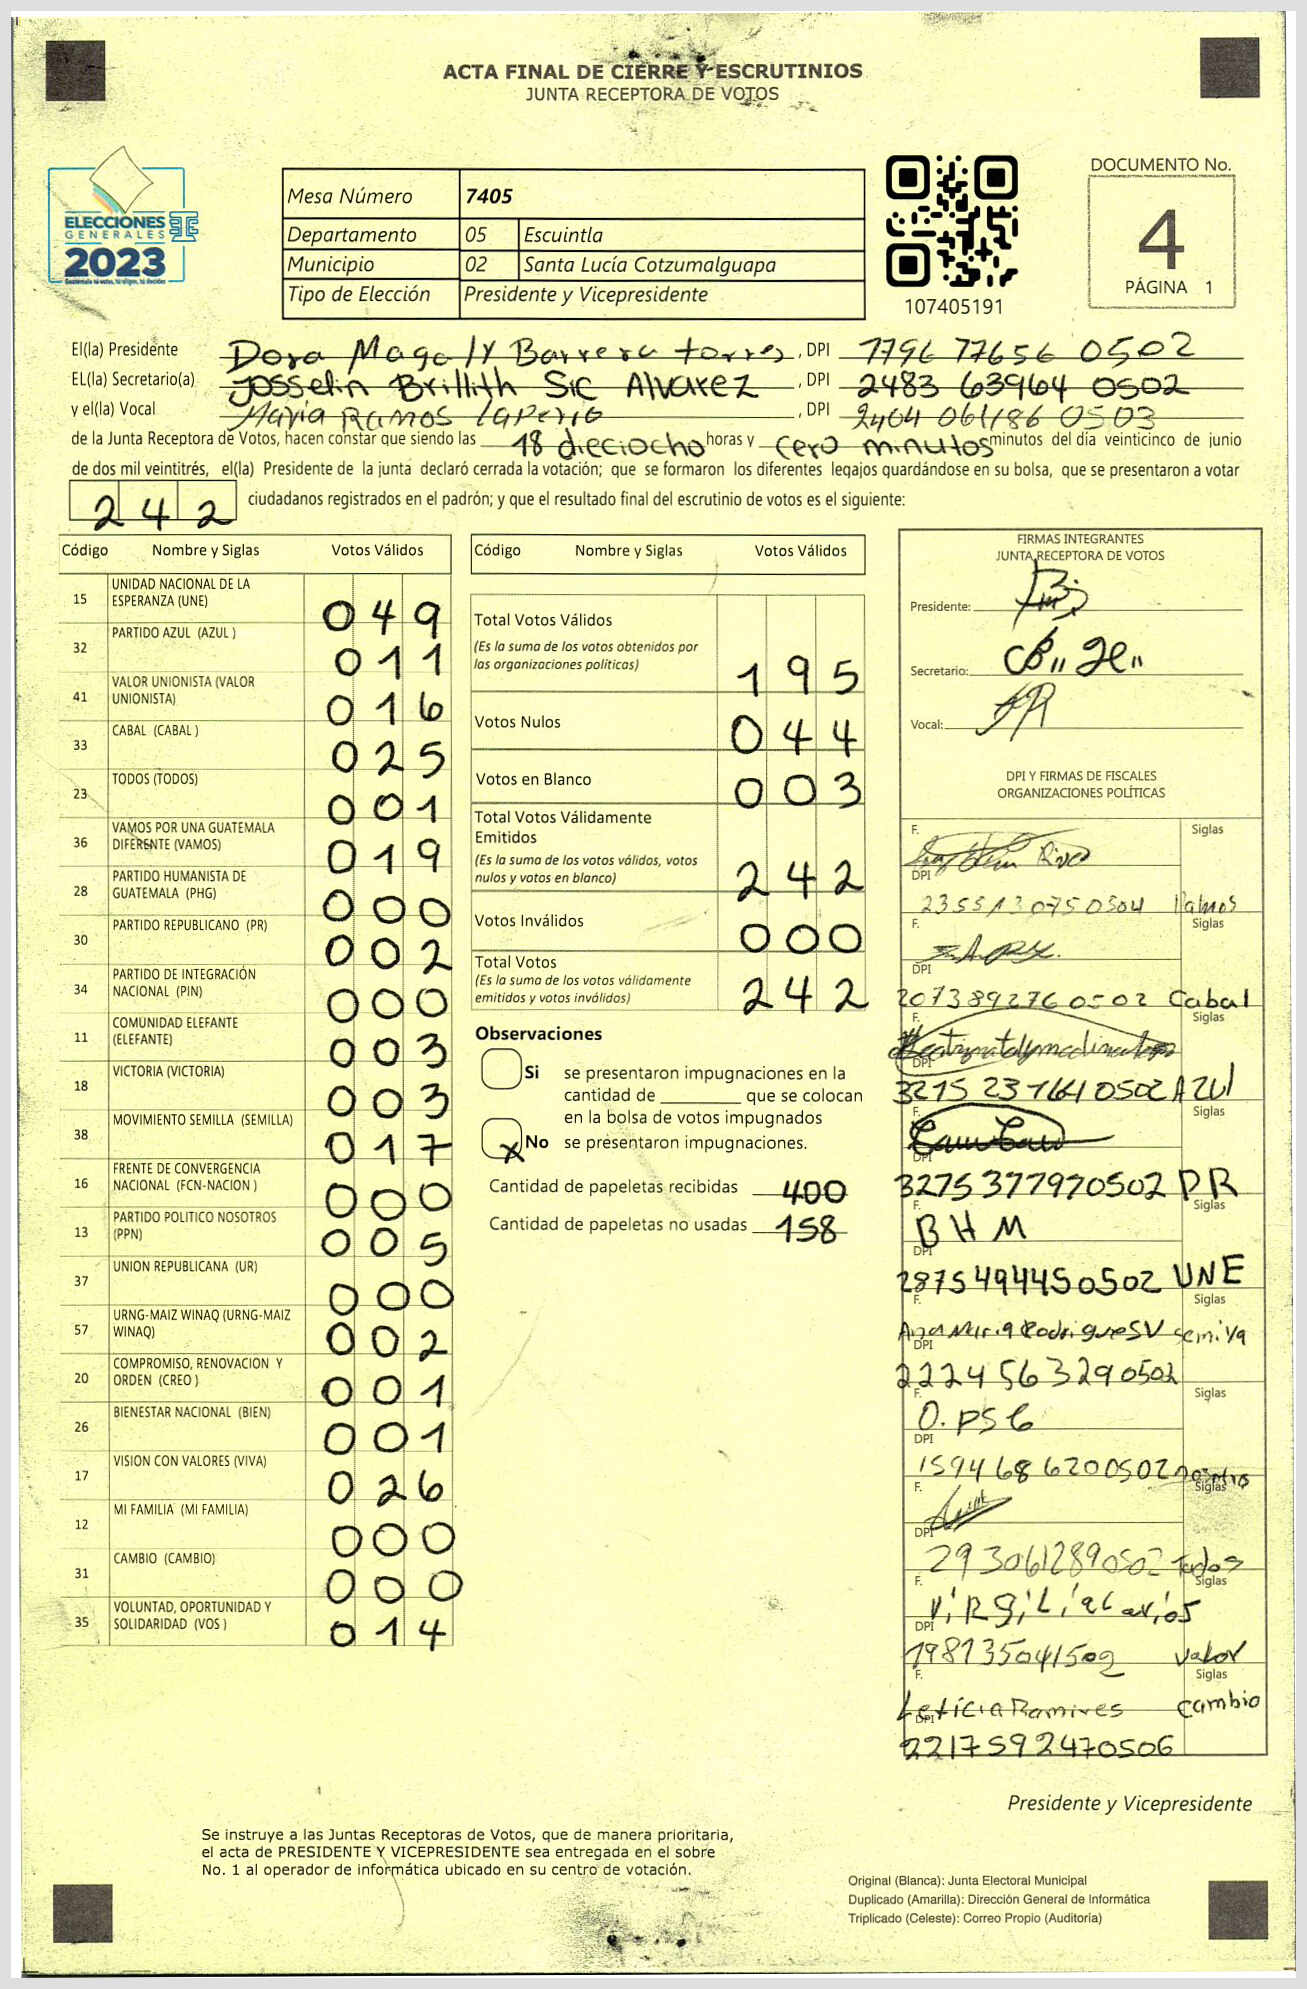 ACTA FINAL DE CIERRE Y ESCRUTINIOS
JUNTA RECEPTORA DE VOTOS
ELECCIONES
GENERALES
2023
Mesa Número 7405
Departamento 05 Escuintla
Municipio 02 Santa Lucía Cotzumalguapa
Tipo de Elección Presidente y Vicepresidente
107405191
DOCUMENTO No.
4
PÁGINA 1
El(la) Presidente Dora Magaly Barrera torres, DPI 7796 77656 0502
EL(la) Secretario(a) Josselin Brillith Sic Alvarez, DPI 2483 63964 0502
y el(la) Vocal Maria Ramos, DPI 2404 061186 0503
de la Junta Receptora de Votos, hacen constar que siendo las 18 dieciocho horas y cero minutos minutos del día veinticinco de junio
de dos mil veintitrés, el(la) Presidente de la junta declaró cerrada la votación; que se formaron los diferentes legajos guardándose en su bolsa, que se presentaron a votar
242 ciudadanos registrados en el padrón; y que el resultado final del escrutinio de votos es el siguiente:
Código Nombre y Siglas Votos Válidos
15 UNIDAD NACIONAL DE LA ESPERANZA (UNE) 049
32 PARTIDO AZUL (AZUL ) 011
41 VALOR UNIONISTA (VALOR UNIONISTA) 016
33 CABAL (CABAL ) 025
23 TODOS (TODOS) 001
36 VAMOS POR UNA GUATEMALA DIFERENTE (VAMOS) 019
28 PARTIDO HUMANISTA DE GUATEMALA (PHG) 000
30 PARTIDO REPUBLICANO (PR) 002
34 PARTIDO DE INTEGRACIÓN NACIONAL (PIN) 000
11 COMUNIDAD ELEFANTE (ELEFANTE) 003
18 VICTORIA (VICTORIA) 003
38 MOVIMIENTO SEMILLA (SEMILLA) 017
16 FRENTE DE CONVERGENCIA NACIONAL (FCN-NACION ) 000
13 PARTIDO POLITICO NOSOTROS (PPN) 005
37 UNION REPUBLICANA (UR) 000
57 URNG-MAIZ WINAQ (URNG-MAIZ WINAQ) 002
20 COMPROMISO, RENOVACION Y ORDEN (CREO ) 001
26 BIENESTAR NACIONAL (BIEN) 001
17 VISION CON VALORES (VIVA) 026
12 MI FAMILIA (MI FAMILIA) 000
31 CAMBIO (CAMBIO) 000
35 VOLUNTAD, OPORTUNIDAD Y SOLIDARIDAD (VOS ) 014
Código Nombre y Siglas Votos Válidos
Total Votos Válidos 195
(Es la suma de los votos obtenidos por
las organizaciones políticas)
Votos Nulos 044
Votos en Blanco 003
Total Votos Válidamente
Emitidos
(Es la suma de los votos válidos, votos
nulos y votos en blanco) 242
Votos Inválidos 000
Total Votos
(Es la suma de los votos válidamente
emitidos y votos inválidos) 242
Observaciones
Si se presentaron impugnaciones en la
cantidad de ________ que se colocan
en la bolsa de votos impugnados
x No se presentaron impugnaciones.
Cantidad de papeletas recibidas 400
Cantidad de papeletas no usadas 158
FIRMAS INTEGRANTES
JUNTA RECEPTORA DE VOTOS
Presidente:
Secretario:
Vocal:
DPI Y FIRMAS DE FISCALES
ORGANIZACIONES POLÍTICAS
F. Siglas
DPI
2355130750504
F. Siglas
DPI
207389276 0502 Cabal
F. Siglas
DPI
3275 237641 0502 AZUl
F. Siglas
DPI
3275377970502 PR
F. BHM Siglas
DPI
2875494450502 UNE
F. Ana Maria Rodrigues V semiya Siglas
DPI
2224563290502
F. O. PSC Siglas
DPI
1594686200502
F. Siglas
DPI
2930612890502 Todos
F. Siglas
DPI
198135041502 valor
F. Leticia Ramires cambio Siglas
DPI
2217592470506
Presidente y Vicepresidente
Se instruye a las Juntas Receptoras de Votos, que de manera prioritaria,
el acta de PRESIDENTE Y VICEPRESIDENTE sea entregada en el sobre
No. 1 al operador de informática ubicado en su centro de votación.
Original (Blanca): Junta Electoral Municipal
Duplicado (Amarilla): Dirección General de Informática
Triplicado (Celeste): Correo Propio (Auditoría)